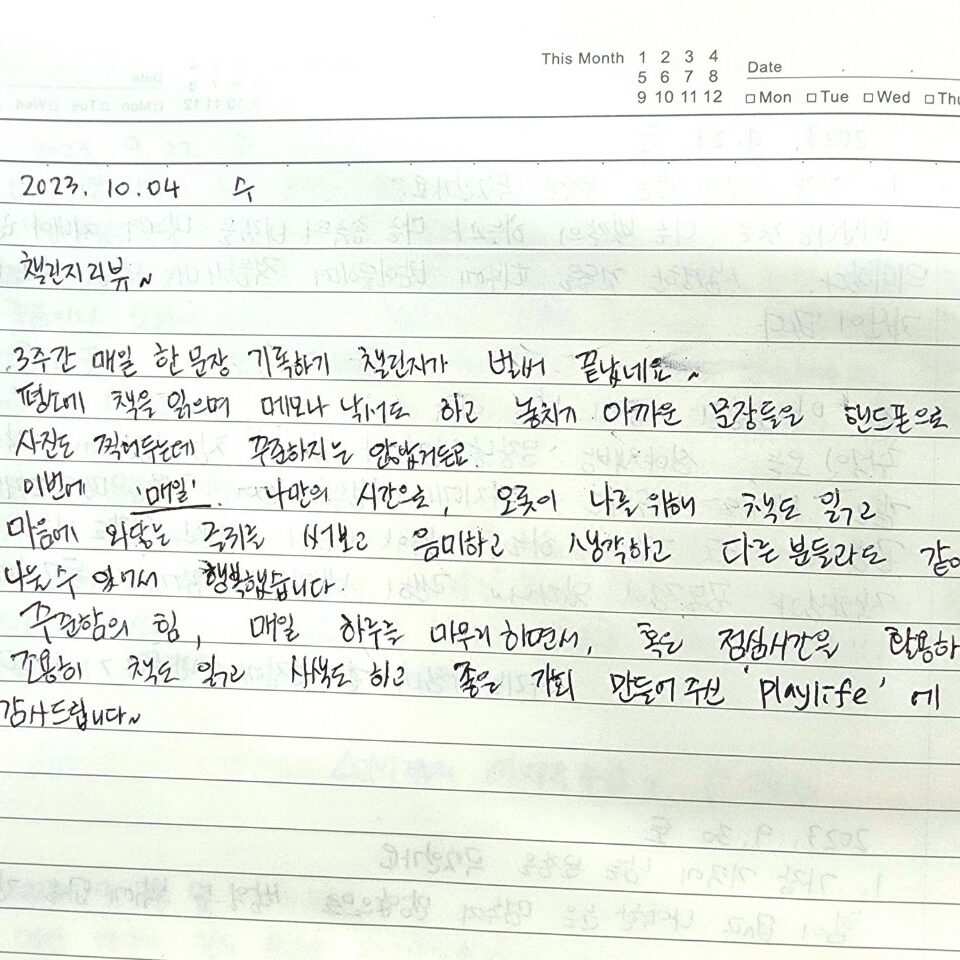 This Month 1 2 3 4
5 6 7 8
9 10 11 12
Date
□Mon □Tue □Wed □Thu
2023. 10. 04 수
챌린지리뷰~
3주간 매일 한 문장 기록하기 챌린지가 벌써 끝났네요~
평소에 책을 읽으며 메모나 낙서도 하고 놓치기 아까운 문장들은 핸드폰으로
사진도 찍어두는데 꾸준하지는 않았거든요.
이번에 '매일' 나만의 시간으로, 오롯이 나를 위해 책도 읽고
마음에 와닿는 글귀는 써보고 음미하고 생각하고 다른 분들과도 같이
나눌 수 있어서 행복했습니다.
꾸준함의 힘, 매일 하루를 마무리하면서, 혹은 점심시간을 활용하
조용히 책도 읽고 사색도 하고 좋은 기회 만들어 주신 'playlife' 에
감사드립니다~